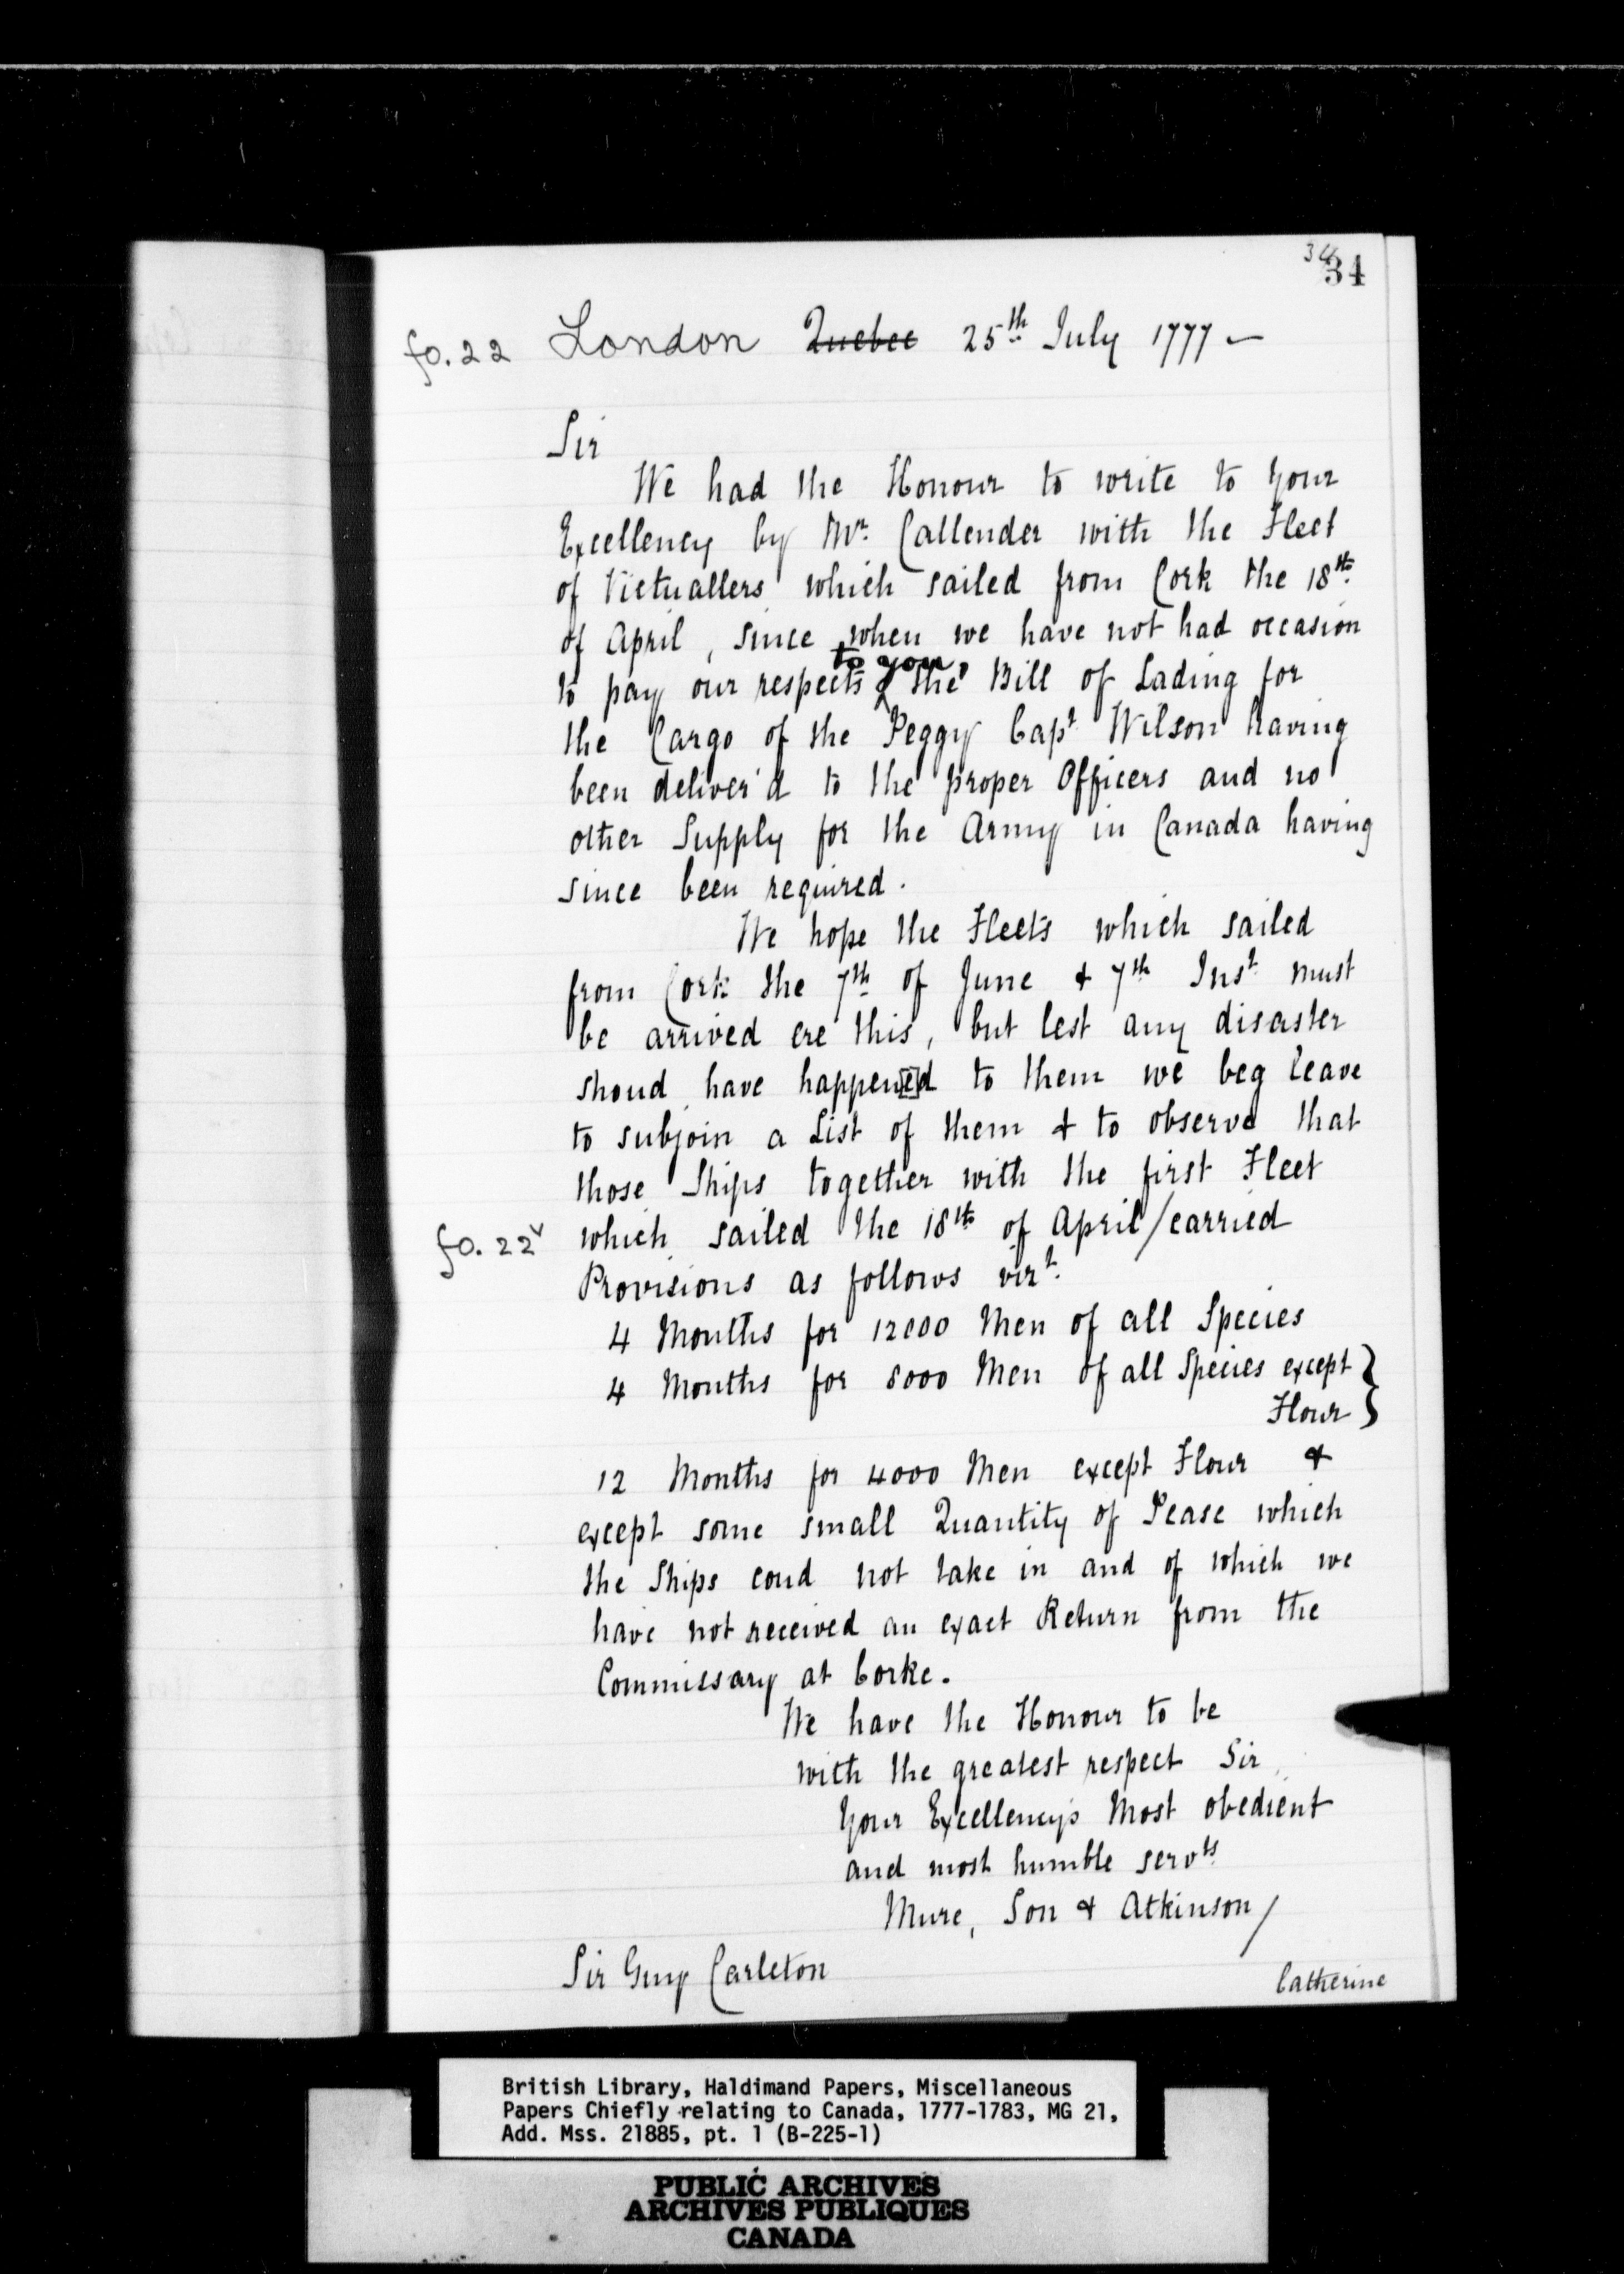 34
34
fo. 22 London Quebec 25th July 1777 —
Sir
We had the Honour to write to Your
Excellency by Mr. Callender with the Fleet
of Victuallers which sailed from Cork the 18th.
of April, since when we have not had occasion
to you,
to pay our respects ^ the Bill of Lading for
the Cargo of the Peggy Capt Wilson having
been deliver'd to the proper Officers and no
other Supply for the Army in Canada having
since been required.
We hope the Fleets which sailed
from Cork the 7th of June & 7th Inst must
be arrived ere this, but lest any disaster
shoud have happened to them we beg leave
to subjoin a List of them & to observe that
those Ships together with the first Fleet
fo. 22v which sailed the 18th of April/carried
Provisions as follows vizt.
4 Months for 12000 Men of all Species
4 Months for 8000 Men of all Species except }
Flour }
12 Months for 4000 Men except Flour &
except some small Quantity of Pease which
the Ships coud not take in and of which we
have not received an exact Return from the
Commissary at Corke.
We have the Honour to be
with the greatest respect Sir
Your Excellency's Most obedient
and most humble servts
Mure, Son & Atkinson/
Sir Guy Carleton
Catherine
British Library, Haldimand Papers, Miscellaneous
Papers Chiefly relating to Canada, 1777-1783, MG 21,
Add. Mss. 21885, pt. 1 (B-225-1)
PUBLIC ARCHIVES
ARCHIVES PUBLIQUES
CANADA